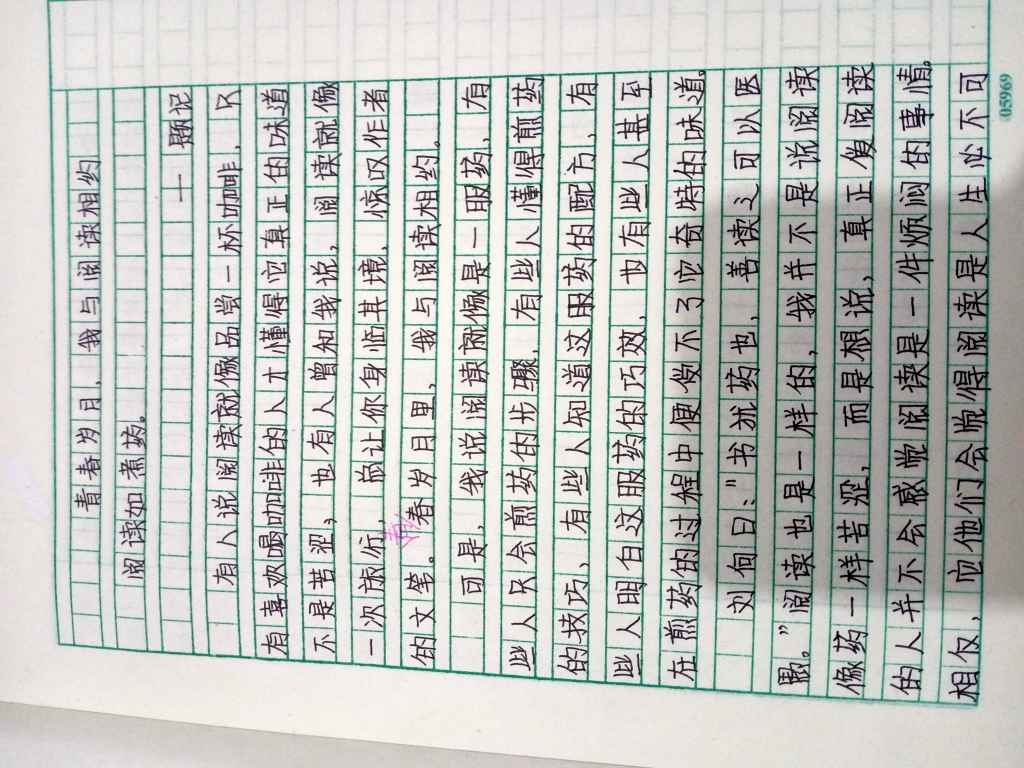 青春岁月，我与阅读相约
阅读如煮药。
——题记
有人说阅读就像品尝一杯咖啡，只
有喜欢喝咖啡的人才懂得它真正的味道
不是苦涩；也有人曾和我说，阅读就像
一次旅行，总让你身临其境，惊叹作者
的文笔。春岁月里，我与阅读相约。
可是，我说阅读就像是一服药，有
些人只会煎药的步骤，有些人懂得煎药
的技巧，有些人知道这服药的配方，有
些人明白这服药的巧效，也有些人甚至
在煎药的过程中便受不了它奇特的味道。
刘向曰：“书犹药也，善读之可以医
愚。”阅读也是一样的，我并不是说阅读
像药一样苦涩，而是想说，真正爱阅读
的人并不会感觉阅读是一件烦闷的事情。
相仅，应他们会觉得阅读是人生必不可
05969